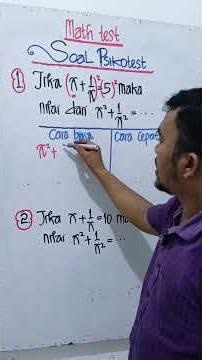 Math test
Soal Psikotest
① Jika (x + 1/x)² = (5)² maka
nilai dari x² + 1/x² = ...
Cara biasa
Cara cepat
x² +
2. Jika x + 1/x = 10 m
nilai x² + 1/x² = ...